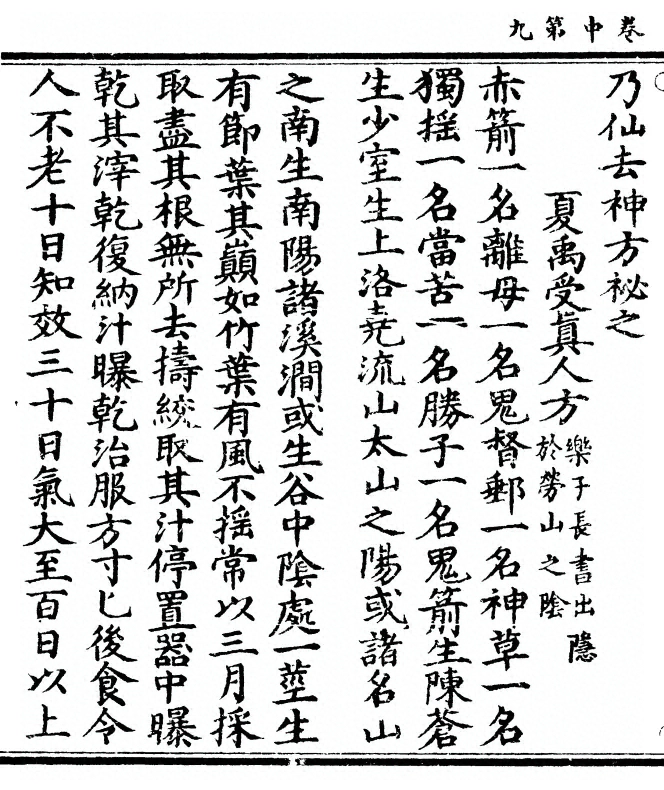 卷中第九
乃仙去神方祕之
夏禹受眞人方樂子長書出隱
於勞山之陰
赤箭一名離母一名鬼督郵一名神草一名
獨摇一名當苦一名勝子一名鬼箭生陳蒼
生少室生上洛堯流山太山之陽或諸名山
之南生南陽諸溪澗或生谷中陰處一莖生
有節葉其巔如竹葉有風不摇常以三月採
取盡其根無所去擣絞取其汁停置器中曝
乾其滓乾復納汁曝乾治服方寸匕後食令
人不老十日知效三十日氣大至百日以上